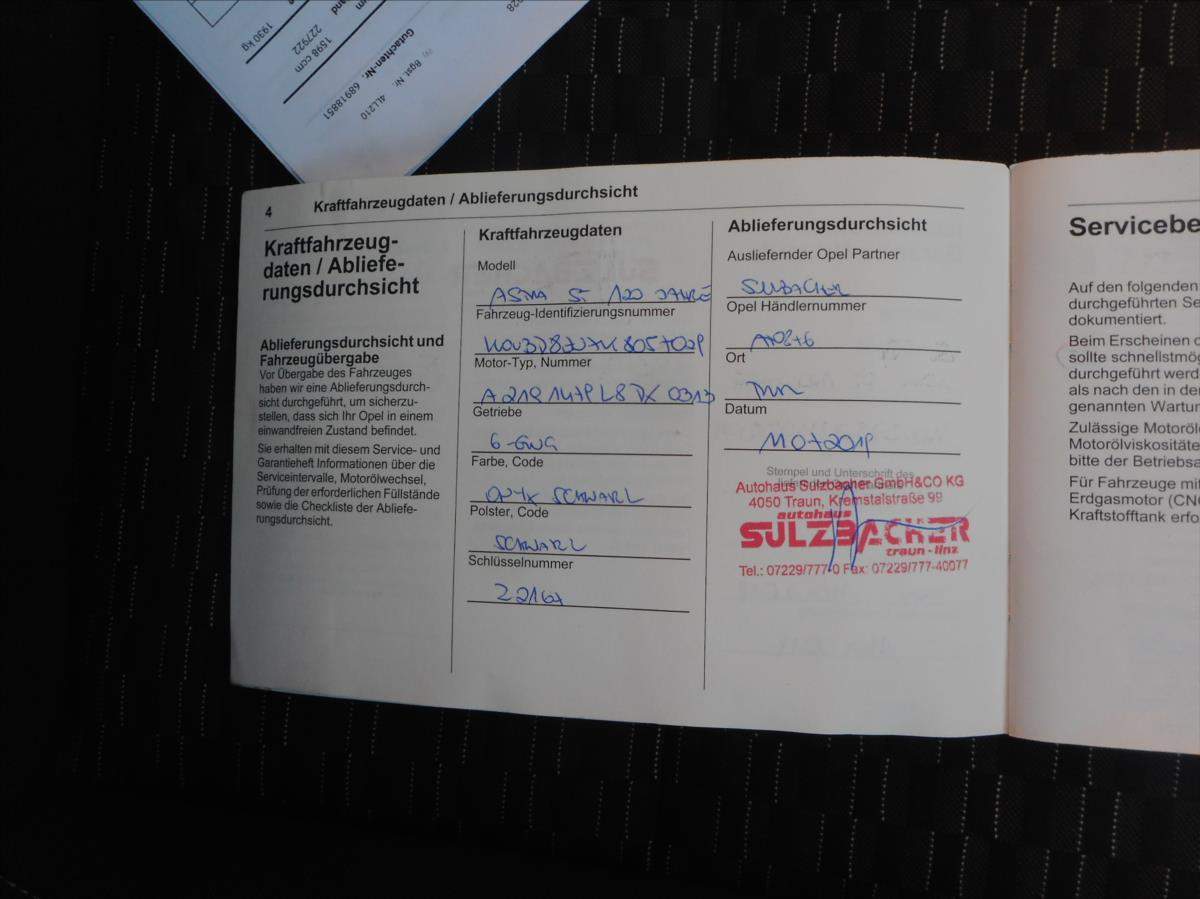 028
1930 kg
227922
1598 ccm
Gutachten-Nr. 68918851
Bgst. Nr. 4LL210
4 Kraftfahrzeugdaten / Ablieferungsdurchsicht
Kraftfahrzeug-
daten / Abliefe-
rungsdurchsicht
Ablieferungsdurchsicht und
Fahrzeugübergabe
Vor Übergabe des Fahrzeuges
haben wir eine Ablieferungsdurch-
sicht durchgeführt, um sicherzu-
stellen, dass sich Ihr Opel in einem
einwandfreien Zustand befindet.
Sie erhalten mit diesem Service- und
Garantieheft Informationen über die
Serviceintervalle, Motorölwechsel,
Prüfung der erforderlichen Füllstände
sowie die Checkliste der Abliefe-
rungsdurchsicht.
Kraftfahrzeugdaten
Modell
ASTRA 5- 120 JAHRE
Fahrzeug-Identifizierungsnummer
Motor-Typ, Nummer
Getriebe
6-GNG
Farbe, Code
ONYX SCHWARZ
Polster, Code
SCHWARZ
Schlüsselnummer
Z2167
Ablieferungsdurchsicht
Ausliefernder Opel Partner
SULZBACHER
Opel Händlernummer
Ort
Datum
11072019
Stempel und Unterschrift des
Autohaus Sulzbacher GmbH&CO KG
4050 Traun, Kremstalstraße 99
autohaus
SULZBACHER
traun-linz
Tel.: 07229/777-0 Fax: 07229/777-40077
Servicebe
Auf den folgenden
durchgeführten Se
dokumentiert.
Beim Erscheinen d
sollte schnellstmög
durchgeführt werd
als nach den in de
genannten Wartun
Zulässige Motoröle
Motorölviskositäte
bitte der Betriebsa
Für Fahrzeuge mit
Erdgasmotor (CNG
Kraftstofftank erfo